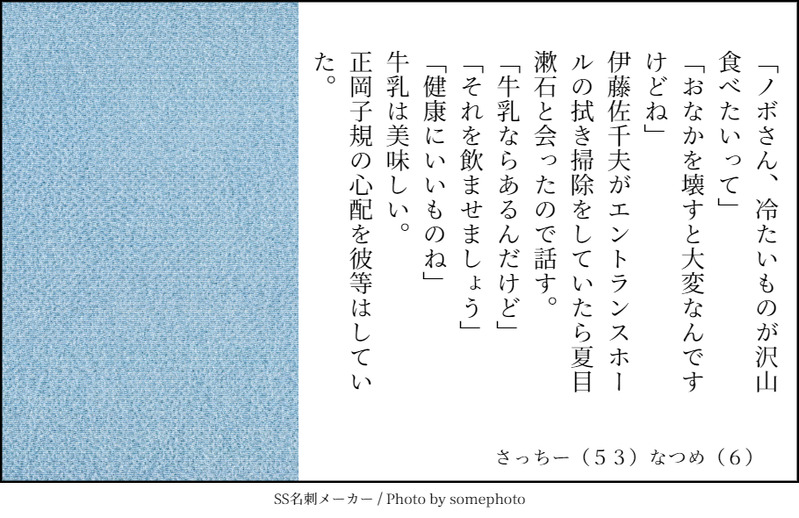 「ノボさん、冷たいものが沢山
食べたいって」
「おなかを壊すと大変なんです
けどね」
伊藤佐千夫がエントランスホー
ルの拭き掃除をしていたら夏目
漱石と会ったので話す。
「牛乳ならあるんだけど」
「それを飲ませましょう」
「健康にいいものね」
牛乳は美味しい。
正岡子規の心配を彼等はしてい
た。
さっちー（５３）なつめ（６）
SS名刺メーカー / Photo by somephoto